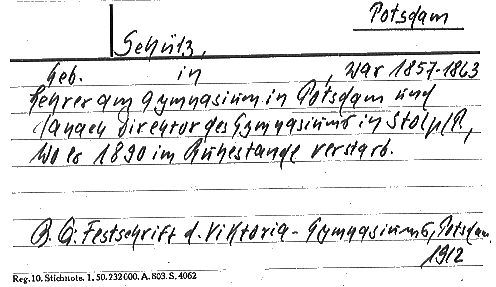 Potsdam
Schütz,
geb. in , war 1857-1863
Lehrer am Gymnasium in Potsdam und
Direktor des Gymnasiums in Stolp/P.,
wo er 1890 im Ruhestande verstarb.
B. G. Festschrift d. Viktoria-Gymnasiums, Potsdam
1912
Reg. 10. Stichnote. 1. 50. 232000. A. 803. S. 4062